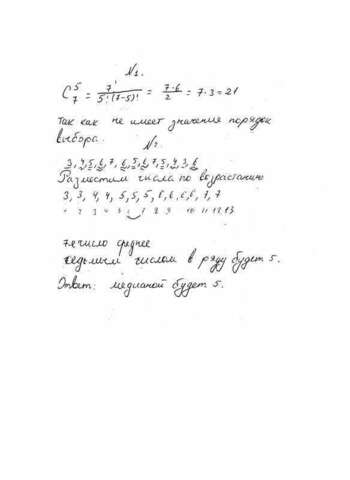 №1.
C₇⁵ = 7! / 5!(7-5)! = 7·6 / 2 = 7·3 = 21
Так как не имеет значения порядок
выбора.
№2.
3, 4, 5, 6, 7, 6, 5, 6, 7, 5, 4, 3, 6
Разместим числа по возрастанию
3, 3, 4, 4, 5, 5, 5, 6, 6, 6, 6, 7, 7
2 3 4 5 7 8 9 10 11 12 13
7е число среднее
седьмым числом в ряду будет 5.
Ответ: медианой будет 5.